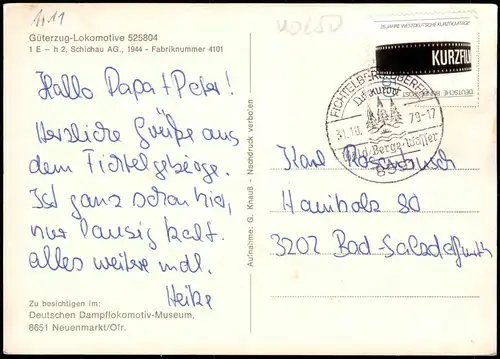 11.11
Güterzug-Lokomotive 525804
1 E – h 2, Schichau AG., 1944 - Fabriknummer 4101
Hallo Papa + Peter!
Herzliche Grüße aus
dem Fichtelgebirge.
Ist ganz schön hier,
nur lausig kalt.
alles weitere mdl.
Heike
Zu besichtigen im:
Deutschen Dampflokomotiv-Museum,
8651 Neuenmarkt/Ofr.
Aufnahme: G. Knauß - Nachdruck verboten
25 JAHRE WESTDEUTSCHE KURZFILMTAGE
KURZFILM
DEUTSCHE BUNDESPOST
FICHTELBERG
Luftkurort
31.10. 79-17
Wald-Berge-Wasser
Karl
Holzhals 80
3202 Bad-Salzdetfurth